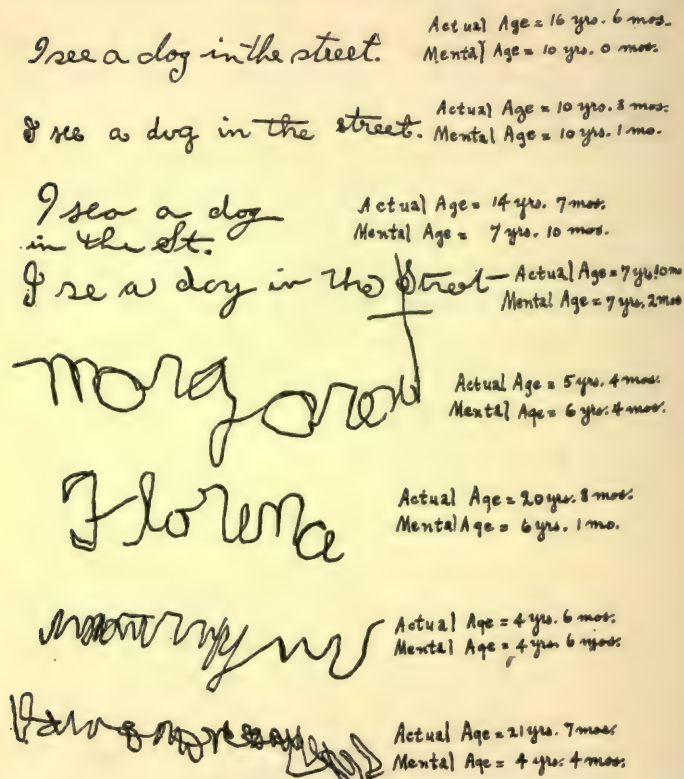 I see a dog in the street.
Actual Age = 16 yrs. 6 mos.
Mental Age = 10 yrs. 0 mos.
I see a dog in the street.
Actual Age = 10 yrs. 8 mos.
Mental Age = 10 yrs. 1 mo.
I see a dog
in the St.
Actual Age = 14 yrs. 7 mos.
Mental Age = 7 yrs. 10 mos.
I se a dog in the Street
Actual Age = 7 yrs. 10 mo
Mental Age = 7 yrs. 2 mos
Margaret
Actual Age = 5 yrs. 4 mos.
Mental Age = 6 yrs. 4 mos.
Florena
Actual Age = 20 yrs. 8 mos.
Mental Age = 6 yrs. 1 mo.
Actual Age = 4 yrs. 6 mos.
Mental Age = 4 yrs. 6 mos.
Actual Age = 21 yrs. 7 mos.
Mental Age = 4 yrs. 4 mos.